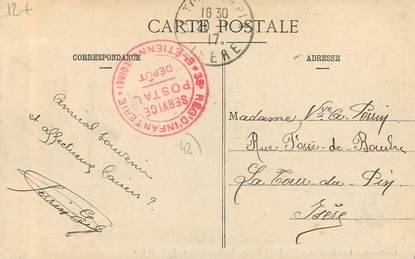 12+
CARTE POSTALE
CORRESPONDANCE
ADRESSE
16 30
17
ISÈRE
38e RÉGt D'INFANTERIE
St ETIENNE (LOIRE)
SERVICE
POSTAL
DÉPÔT
Amical souvenir
et affectueux baisers
42)
Madame Vve A. Perrin
Rue Fosse-de-Boudre
La Tour-du-Pin
Isère